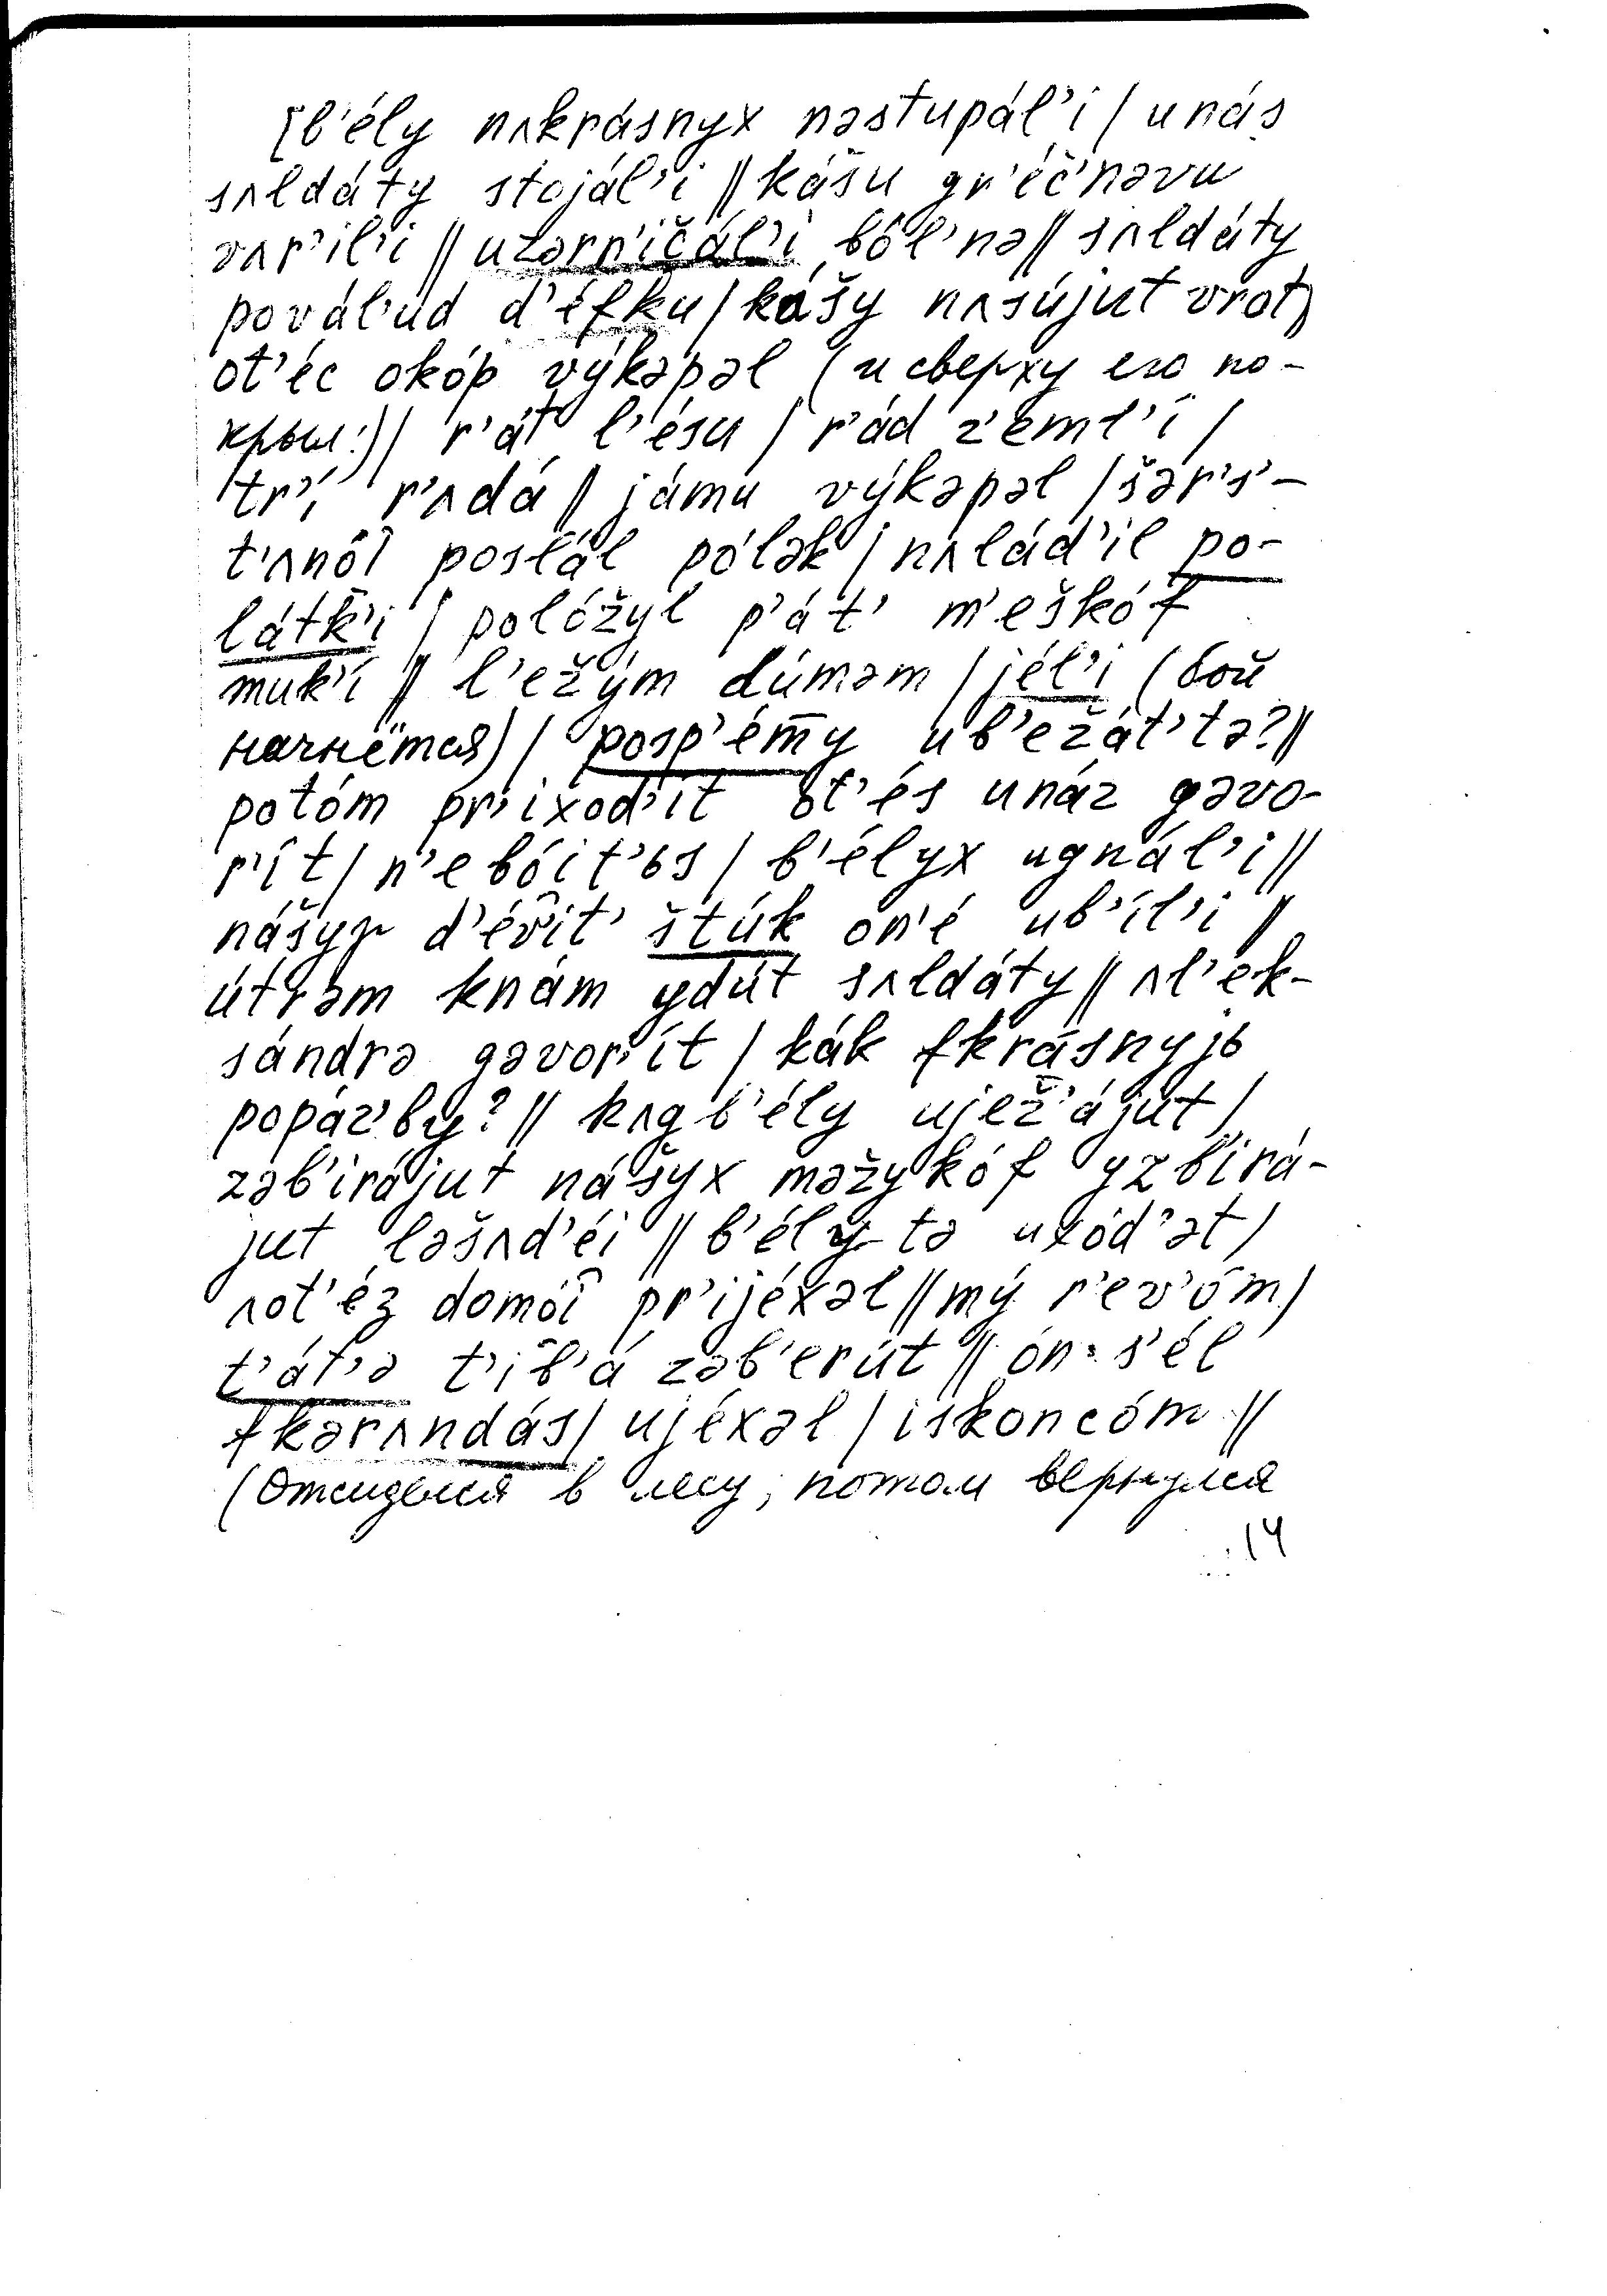 [b'ély nʌkrásnyx nəstupál'i / unás
sʌldáty stojál'i // kášu gr'éč'nəvu
vʌr'íl'i // uzərn'ičál'i ból'nə // sʌldáty
povál'ud d'éfku / kášy nʌsújut vrot /
ot'éc okóp výkəpəl (и сверху его по-
крыл:) / r'át l'ésu / r'ád z'eml'í /
tr'í r'ʌdá // jámu výkəpəl / šərs'-
t'ʌnói̯ postál pólək / nʌlád'il po-
látk'i / polóžyl p'át' m'eškóf
muk'í // l'ežým dúməm / jél'i (бой
начнётся) / posp'émy ub'ežát'tə? //
potóm pr'ixod'it ot'és unáz gəvo-
r'ít / n'ebóit'ьs / b'élyx ugnál'i //
nášyx d'év'it' štúk on'é ub'íl'i //
útrəm knám ydút sʌldáty // ʌl'ek-
sándrə gəvor'ít / kák fkrásnyjь
popáz'by? // kʌgb'ély ujež'ájut /
zəb'irájut nášyx məžykóf yzb'irá-
jut ləšʌd'éi // b'ély-tə uxód'ət /
ʌot'éz domói̯ pr'ijéxəl // mý r'ev'óm /
t'át'ə t'ib'á zəb'erút // ón s'él
fkərʌndás / ujéxəl / iskoncóm //
(Отсиделся в лесу, потом вернулся
14